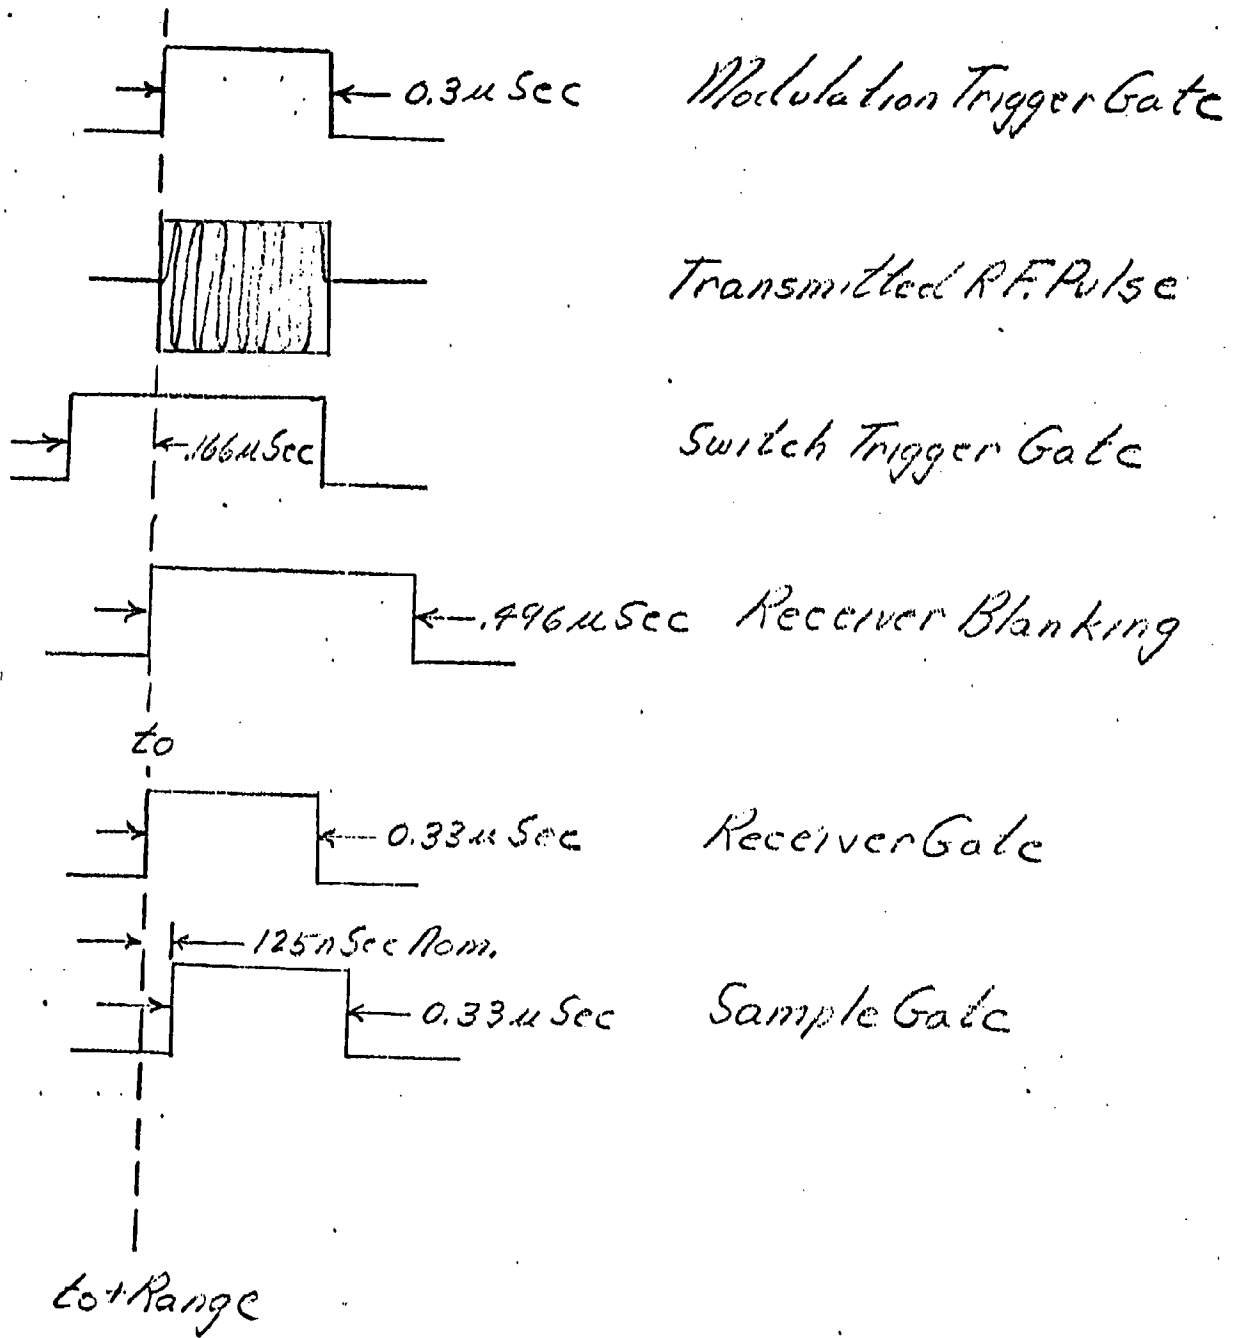 0.3 µ Sec Modulation Trigger Gate
Transmitted R.F. Pulse
.166 µ Sec Switch Trigger Gate
.496 µ Sec Receiver Blanking
to
0.33 µ Sec Receiver Gate
125 n Sec Nom.
0.33 µ Sec Sample Gate
to + Range